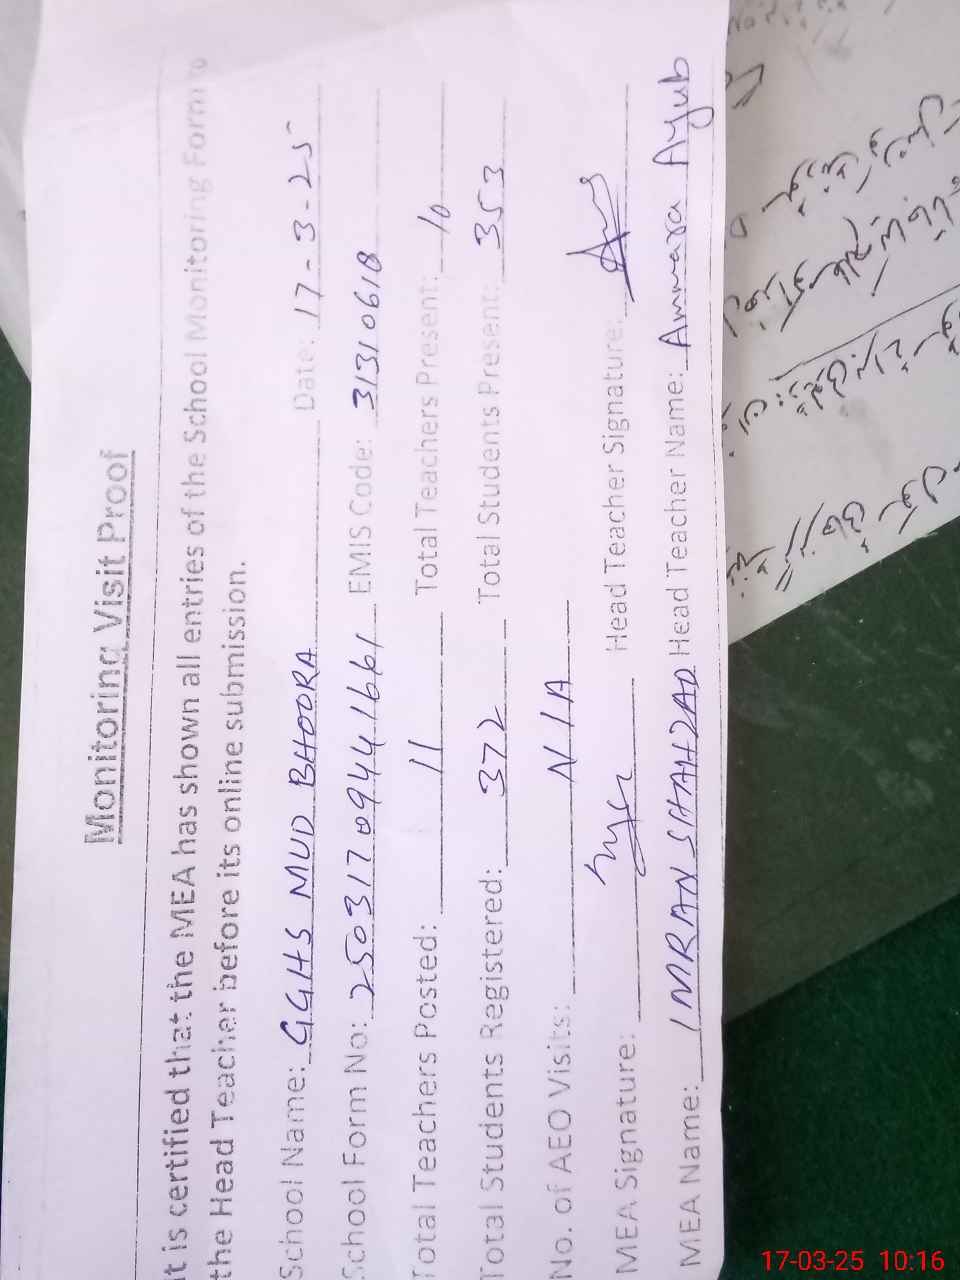 Monitoring Visit Proof
It is certified that the MEA has shown all entries of the School Monitoring Form to
the Head Teacher before its online submission.
School Name: GGHS MUD BHOORA Date: 17-3-25
School Form No: 250317094441661 EMIS Code: 31310618
Total Teachers Posted: 11 Total Teachers Present: 10
Total Students Registered: 372 Total Students Present: 353
No. of AEO Visits: N/A
MEA Signature: Head Teacher Signature:
MEA Name: IMRAN SHAHZAD Head Teacher Name: Ammara Ayub
17-03-25 10:16